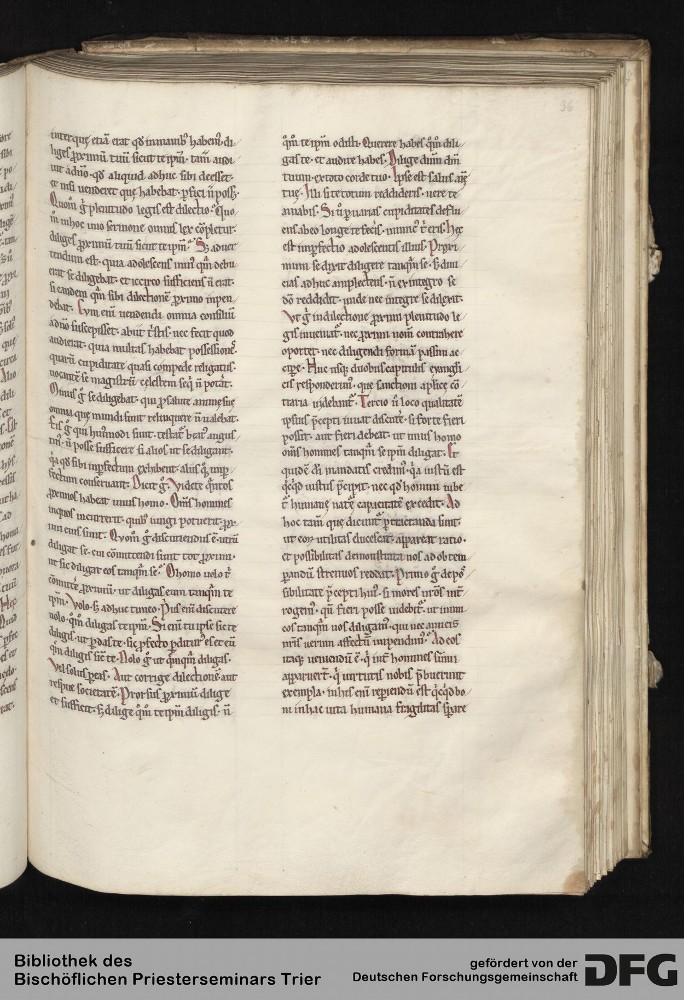 36
intet quę etiā erat qd̄ in manib; habem̄. di
liges ꝓximū tuū sicut te ipm̄. tam̄ audi
uit a dño. qd̄ aliquid adhuc sibi deesset.
et nisi uenderet quę habebat. ꝑfici n̄ poss&.
Quom̄ g̊ plenitudo legis est dilectio. Quo
m̄ in hoc uno sermone omnis lex cōpletur.
diliges ꝓximū tuū sicut te ipm̄. S; aduer
tendum est. quia adolescens min; qm̄ debu
erat se diligebat. et iccirco sufficiens n̄ erat.
si eandem qm̄ sibi dilectionē ꝓximo inpen
debat. Cum eni uendendi omnia consiliū
a dño suscepisset. abiit t̄stis. nec fecit quod
audierat. quia multas habebat possessionē.
quarū cupiditate quasi compede religatus.
uocantē se magistrū celestem seq̄ n̄ potat.
Omnis g̊ se diligebat. qui ꝓ salute animę suę
omnia que mundi sunt relinquere n̄ ualebat.
Eis g̊ qui hui;modi sunt. testat̄ beat; augus
tin;. n̄ posse sufficere si alios ut se diligant.
fectum conseruant. Dicit g̊. Videte qm̄tos
ꝓximos habeat unus homo. Om̄s homines
inquos incurrerit. quib; iungi potuerit. ꝓx
imi eius sunt. Quom̄ g̊ discutiendus ē. utrū
diligat se. cui cōmittendi sunt tot ꝓximi.
ut sic diligat eos tanqm̄ se. O homo uolo t̄
cōmitt̄e ꝓximū. ut diligas eum tanqm̄ te
ipm̄. Volo. s; adhuc timeo. Prius eni discutere
uolo. qm̄ diligas te ipm̄. Si eni tu ipse sic te
diligis. ut ꝑdas te. sic ꝓfecto ꝑditur; es et eū
qm̄ diligis sic̄ te. Nolo g̊ ut qm̄qm̄ diligas.
Vel solus ꝑeas. Aut corrige dilectionē. aut
respue societatē. Prorsus ꝓximū dilige
et sufficit. s; dilige qm̄ te ipm̄ diligis. n̄
qm̄ te ipm̄ odisti. Querere habes qm̄ dili
gas te. et audire habes. Dilige dnm̄ dm̄
tuum. ex toto corde tuo. Ipse est salus aīę
tuę. Illi si te totum reddideris. uere te
amabis. Si u̇ ꝑ uarias cupiditates deflu
ens ab eo longe te fecis. inimic; t̄ eris. hęc
est inperfectio adolescentis illius. Proxi
mum se dixit diligere tanqm̄ se. s; diui
cias adhuc amplectens. n̄ ex integro se
dō reddidit. inde nec integre se dilexit.
Vt g̊ in dilectione ꝓximi plenitudo le
gis inueniat̄. nec ꝓximi nom̄ contrahere
oportet. nec diligendi formā passim ac
cipe. Huc usq; duob; capitulis euangli
cis respondetim;. que sanctioni aplicę cō
traria uidebant̄. Tercio n̄ loco qualitatē
ipsius p̄cepti iuuat discut̄e. si forte fieri
possit. aut fieri debeat. ut unus homo
om̄s homines tanqm̄ se ipm̄ diligat. Et
quidē di mandatis credim;. q̄a iustū est
qc̄qd iustus p̄cipit. nec qd̄ homini iube
t̄ humanę natę capacitatē excedit. Ad
hoc tam̄ que dicunt̄ ꝑtractanda sunt.
ut eoꝝ utilitas elucescat. appareat ratio.
et possibilitas demonstrata nos ad obtem
ꝑandū strenuos reddat. Primo g̊ de pos
sibilitate p̄cepti hui;. si mores nr̄os int̄
rogem;. qn̄ fieri posse uidebit̄. ut inimi
cos tanqm̄ nos diligam;. qui nec amicis
nr̄is uerum affectū inpendim;. Ad eos
itaq; ueniendū ē. q̄ int̄ homines sūmi
apparuert̄. q̄ uirtutis nobis p̄buerunt
exempla. in his eni reꝑiendū est qc̄qd bo
ni in hac uita humana fragilitas sꝑare
Bibliothek des
Bischöflichen Priesterseminars Trier
gefördert von der
Deutschen Forschungsgemeinschaft
DFG